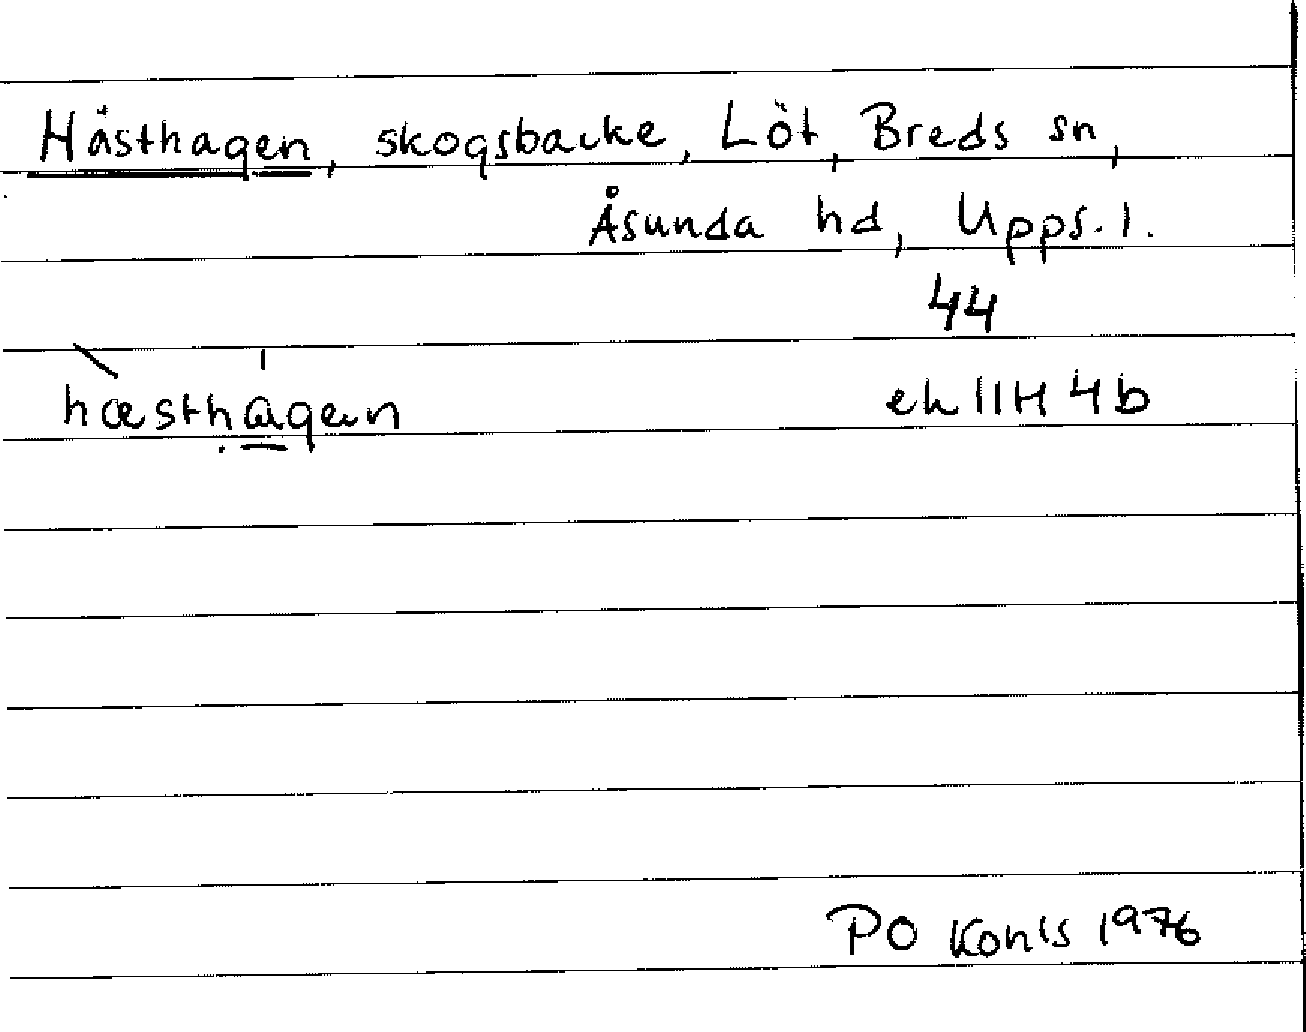 Hästhagen, skogsbacke, Löt, Breds sn,
Åsunda hd, Upps. l.
44
hæsthagen
ek 11H 4b
PO 1976